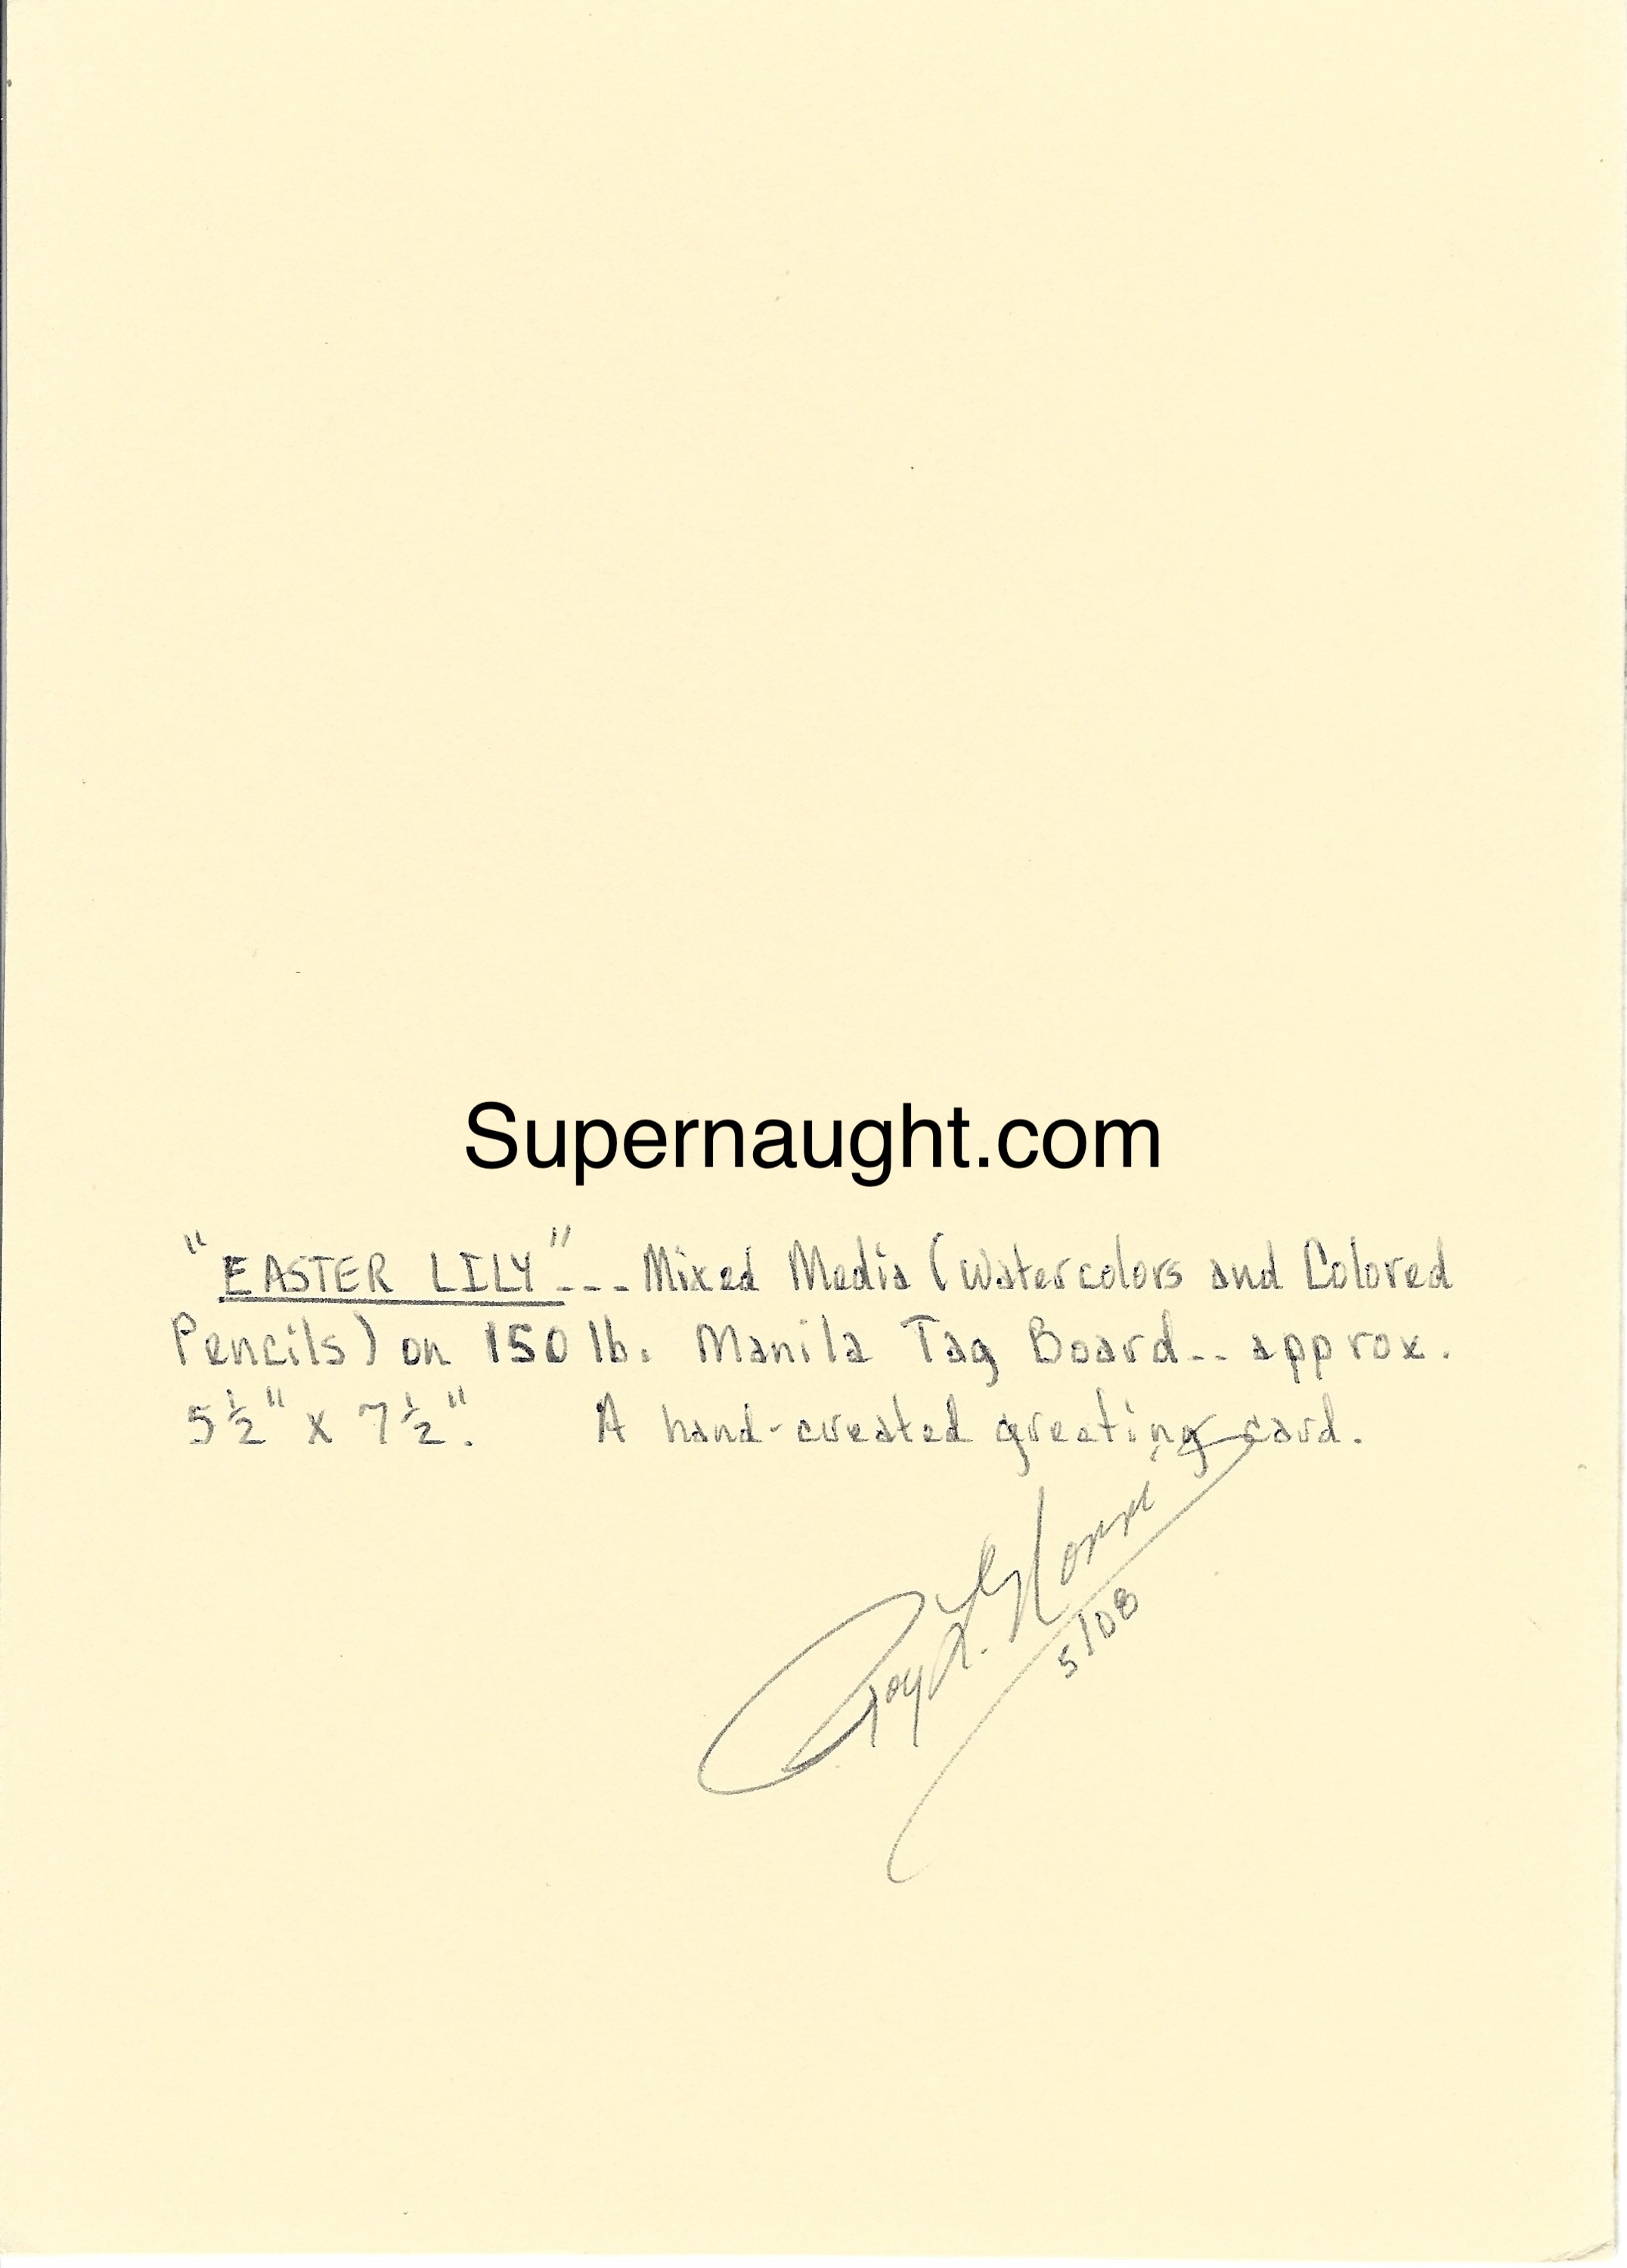 Supernaught.com
"EASTER LILY"--- Mixed Media (Watercolors and Colored
Pencils) on 150 lb. Manila Tag Board-- approx.
5½" x 7½". A hand-created greeting card.
Roy L. Norris
5/08